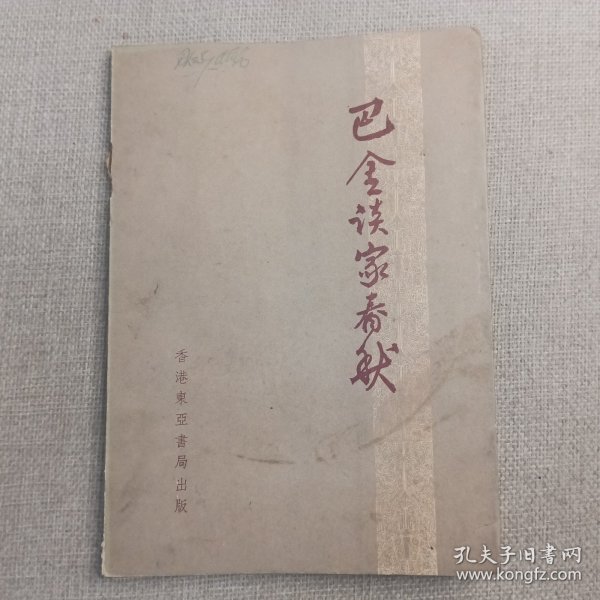 巴金谈家春秋
香港東亞書局出版
孔夫子旧書网
www.kongfz.com